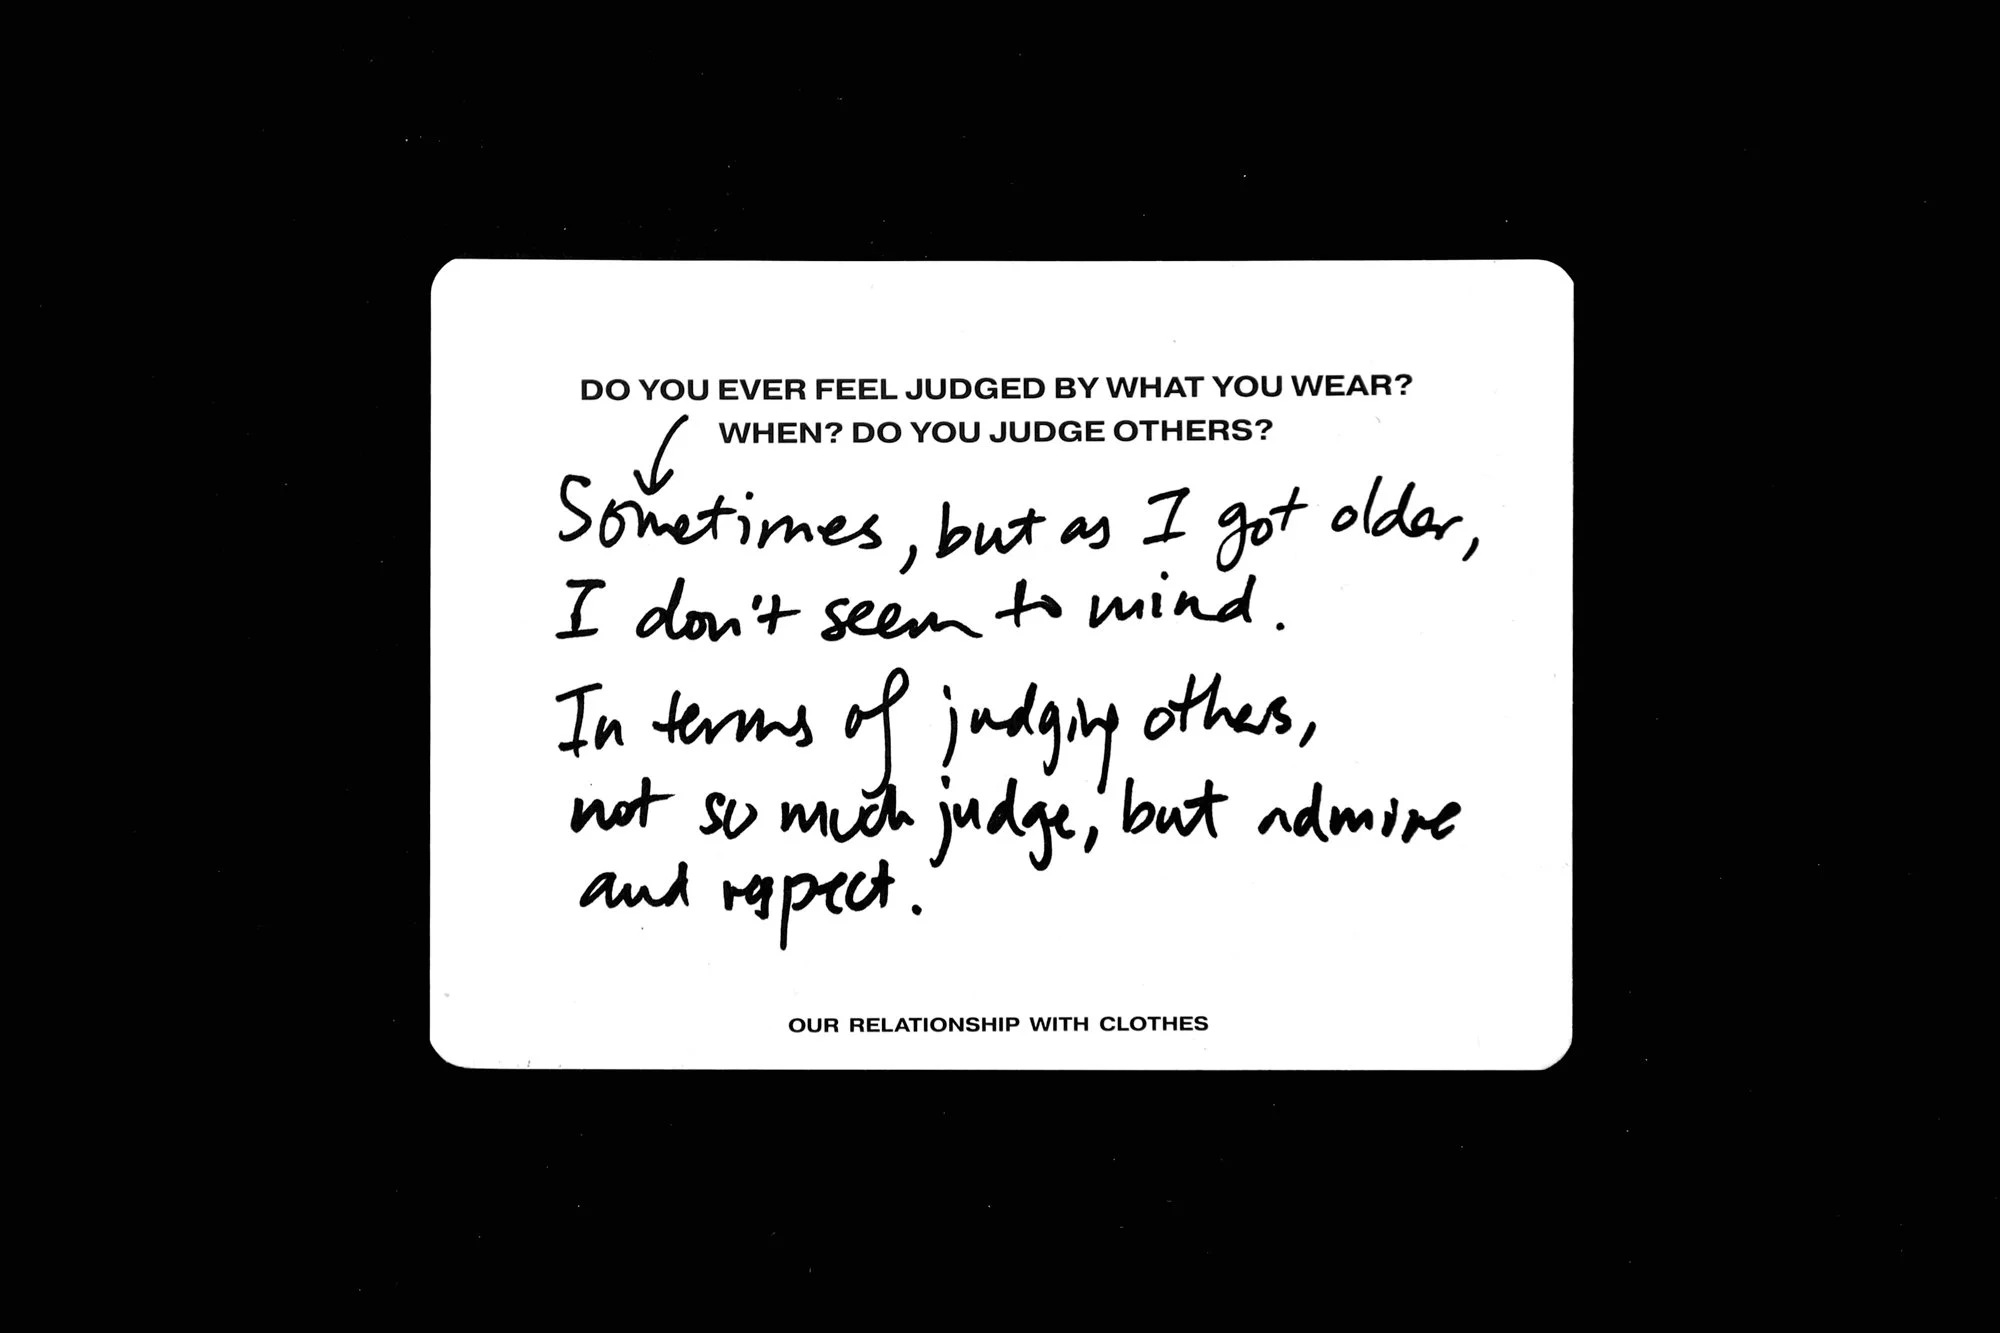 DO YOU EVER FEEL JUDGED BY WHAT YOU WEAR?
WHEN? DO YOU JUDGE OTHERS?
Sometimes, but as I got older,
I don't seem to mind.
In terms of judging others,
not so much judge, but admire
and respect.
OUR RELATIONSHIP WITH CLOTHES